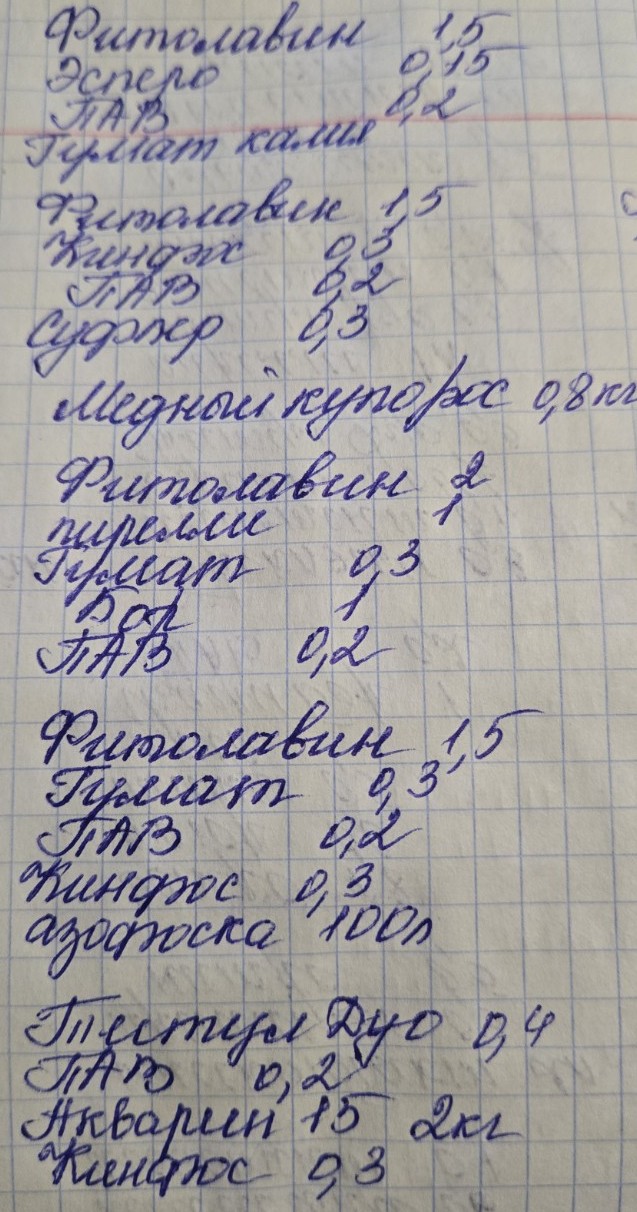 Фитолавин 1,5
Эсперо 0,15
ПАВ 0,2
Гумат калия
Фитолавин 1,5
Кинфос 0,3
ПАВ 0,2
Суфлер 0,3
Медный купорос 0,8кг
Фитолавин 2
пирелли 1
Гумат 0,3
Бор 1
ПАВ 0,2
Фитолавин 1,5
Гумат 0,3
ПАВ 0,2
Кинфос 0,3
азофоска 100л
Дуо 0,4
ПАВ 0,2
Акварин 15 2кг
Кинфос 0,3